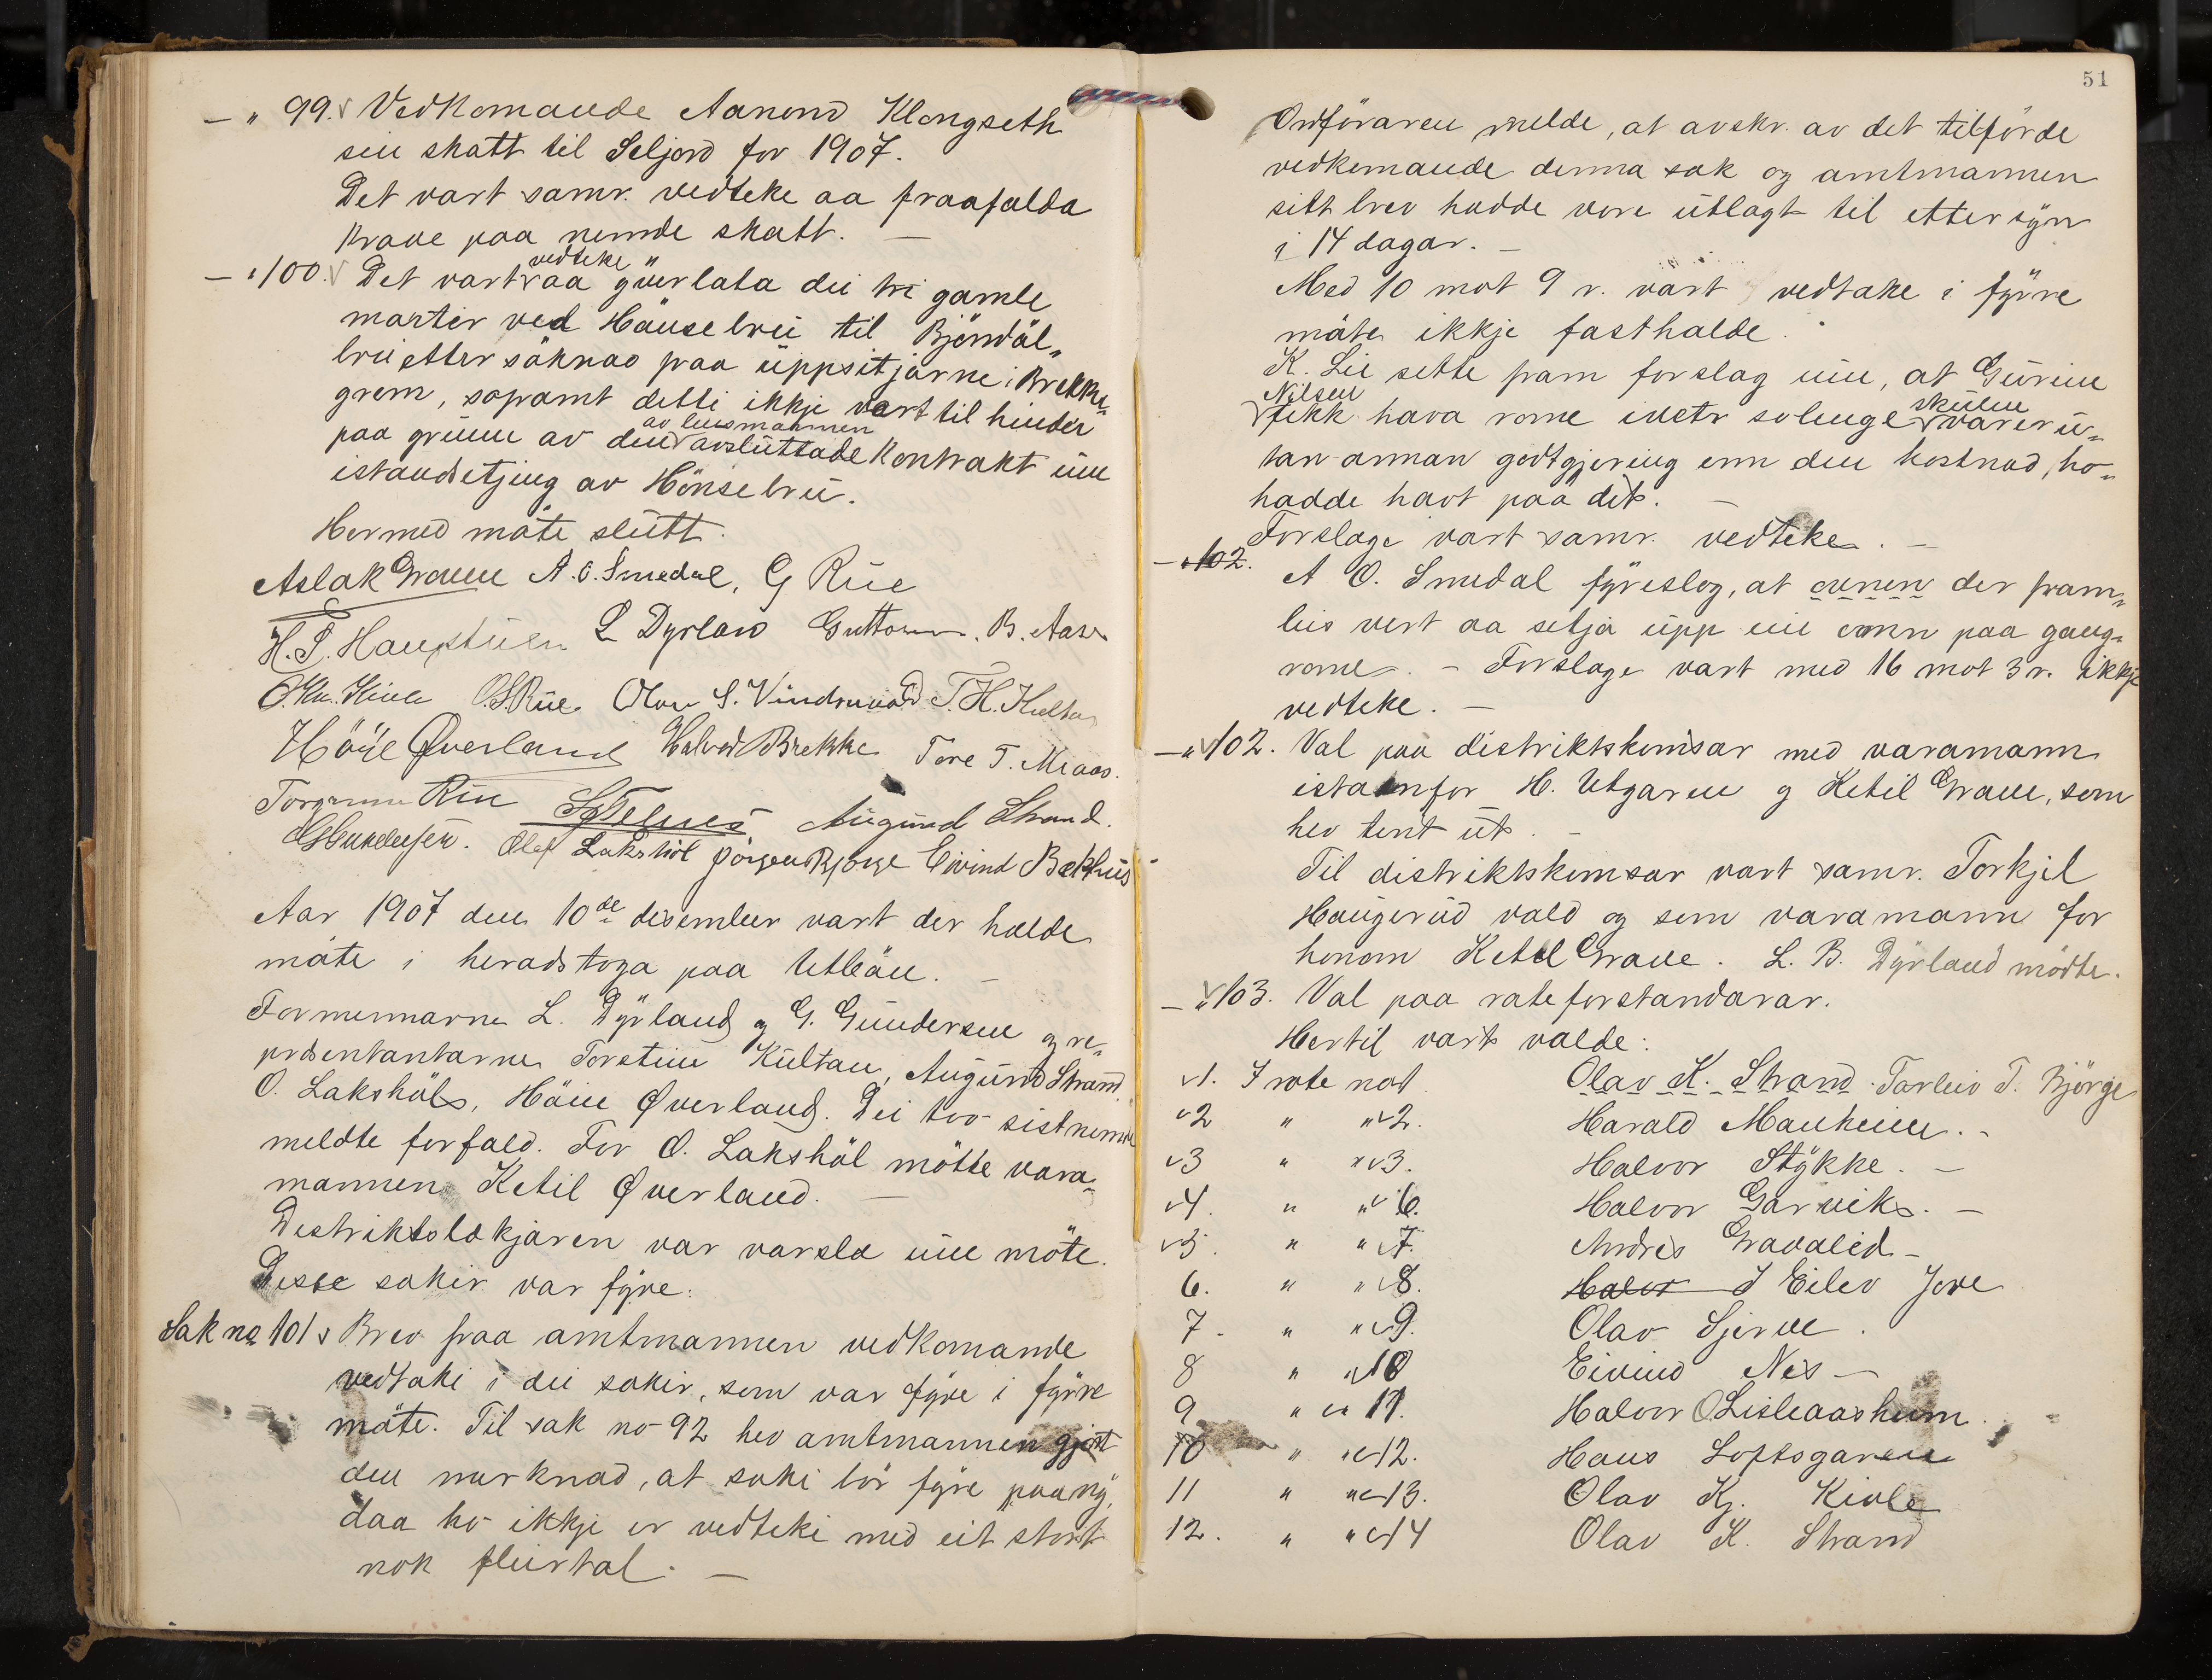 — " 99. Vedkomande Aanond Klongseth
sin skatt til Seljord for 1907.
Det vart samr. vedteke aa fraafalda
krave paa nemde skatt. —
— " 100. Det vart vedteke aa yverlata dei tri gamle
mastir ved Hönsebrui til Bjöndöl-
brui etter söknad fraa uppsitjarne i Brekke-
grem, sopamt detti ikkje vart til hinder
paa grunn av den av lensmannen avsluttade kontrakt um
istandsetjing av Hönsebrui.
Hermed möte slutt.
Aslak Graue A. O. Smedal, G Rue
L Dyrland Guttorm B. Aase
O. Kivle O. S. Rue Olav S. T. H. Kultan
Höye Øverland Halvor Brekke Tore T. Meaas.
Torgrim Rue Augund Strand.
G Gundersen. Olaf Lakshöl Jörgen Bjørge Eivind Bækhus
Aar 1907 den 10de desember vart der halde
möte i heradstoga paa Utböen. —
Formennarne L. Dyrland og G. Gundersen og re-
præsentantarne Torstein Kultan, Augund Strand
O. Lakshöl, Höie Øverland. Dei tvo sistnemde
meldte forfald. For O. Lakshöl mötte vara-
mannen Ketil Øverland. —
Distriktslækjaren var varsla um möte.
Desse sakir var fyre:
Sak no 101 Brev fraa amtmannen vedkomande
vedtaki i dei sakir, som var fyre i fyrre
möte. Til sak no 92 hev amtmannen gjort
den merknad, at saki bör fyre paa ny,
daa ho ikkje er vedteki med eit stort
nok fleirtal. —
51
Ordföraren melde, at avskr. av det tilförde
vedkomande denna sak og amtmannen
sitt brev hadde vore utlagt til ettersyn
i 14 dagar. —
Med 10 mot 9 r. vart vedtake i fyrre
möte ikkje fasthalde.
K. Lie sette fram forslag um, at Gurine
Nilsen fekk hava rome ivetr solenge skulen varer u-
tan annan godtgjering enn den kostnad, ho
hadde havt paa det. —
Forslage vart samr. vedteke. —
— " 102. A O. Smedal fyreslog, at ovnen der fram-
leis vert aa setja upp ein omn paa gang-
rome. — Forslage vart med 16 mot 3 r. ikkje
vedteke. —
— " 102. Val paa distriktskomisar med varamann
istadenfor H. Utgaren og Ketil Graue, som
hev tent ut. —
Til distriktskomsar vart samr. Torkjel
Haugerud vald og som varamann for
honom Ketil Graue. L. B. Dyrland mödte.
— " 103. Val paa roteforstandarar.
Hertil vart valde:
1. I rote no 1 Olav K. Strand. Tarleiv T. Björge
2 " " 2. Harald Manheim. —
3 " " 3. Halvor Stykke. —
4. " " 6. Halvor Garvik. —
5. " " 7. Andres Gravalid —
6. " " 8. Halvor I Eilev Jore
7. " " 9. Olav Sjerve.
8 " " 10 Eivind Nes —
9 " " 11. Halvor O Lisleaasheim.
10 " " 12. Hans Loftsgaren
11 " " 13. Olav Kj. Kivle
12. " " 14 Olav K. Strand